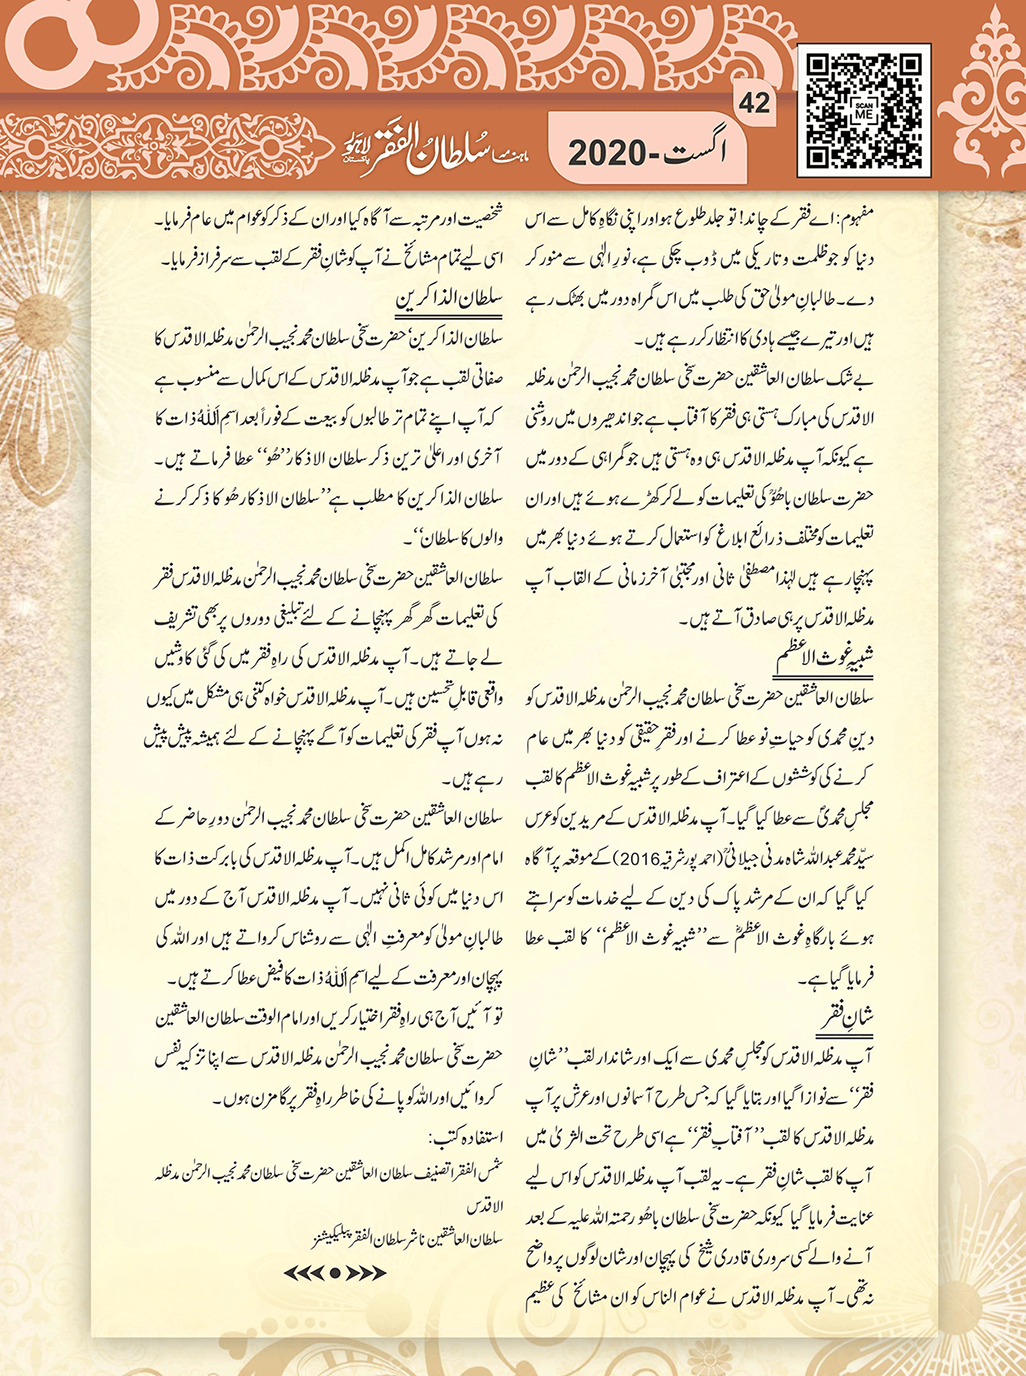 42
SCAN
ME
اگست-2020
ماہنامہ سلطان الفقر لاہور پاکستان
مفہوم: اے فقر کے چاند! تو جلد طلوع ہو اور اپنی نگاہِ کامل سے اس
دنیا کو جو ظلمت و تاریکی میں ڈوب چکی ہے، نورِ الٰہی سے منور کر
دے۔ طالبانِ مولیٰ حق کی طلب میں اس گمراہ دور میں بھٹک رہے
ہیں اور تیرے جیسے ہادی کا انتظار کر رہے ہیں۔
بے شک سلطان العاشقین حضرت سخی سلطان محمد نجیب الرحمٰن مدظلہ
الاقدس کی مبارک ہستی ہی فقر کا آفتاب ہے جو اندھیروں میں روشنی
ہے کیونکہ آپ مدظلہ الاقدس ہی وہ ہستی ہیں جو گمراہی کے دور میں
حضرت سلطان باھوؒ کی تعلیمات کو لے کر کھڑے ہوئے ہیں اور ان
تعلیمات کو مختلف ذرائع ابلاغ کو استعمال کرتے ہوئے دنیا بھر میں
پہنچا رہے ہیں لہٰذا مصطفیٰ ثانی اور مجتبیٰ آخر زمانی کے القاب آپ
مدظلہ الاقدس پر ہی صادق آتے ہیں۔
شبیہِ غوث الاعظم
سلطان العاشقین حضرت سخی سلطان محمد نجیب الرحمٰن مدظلہ الاقدس کو
دینِ محمدی کو حیاتِ نو عطا کرنے اور فقرِ حقیقی کو دنیا بھر میں عام
کرنے کی کوششوں کے اعتراف کے طور پر شبیہِ غوث الاعظم کا لقب
مجلسِ محمدیؐ سے عطا کیا گیا۔ آپ مدظلہ الاقدس کے مریدین کو عرس
سیّد محمد عبداللہ شاہ مدنی جیلانیؒ (احمد پور شرقیہ 2016) کے موقعہ پر آگاہ
کیا گیا کہ ان کے مرشد پاک کی دین کے لیے خدمات کو سراہتے
ہوئے بارگاہِ غوث الاعظمؓ سے ”شبیہِ غوث الاعظم“ کا لقب عطا
فرمایا گیا ہے۔
شانِ فقر
آپ مدظلہ الاقدس کو مجلسِ محمدی سے ایک اور شاندار لقب ”شانِ
فقر“ سے نوازا گیا اور بتایا گیا کہ جس طرح آسمانوں اور عرش پر آپ
مدظلہ الاقدس کا لقب ”آفتابِ فقر“ ہے اسی طرح تحت الثریٰ میں
آپ کا لقب شانِ فقر ہے۔ یہ لقب آپ مدظلہ الاقدس کو اس لیے
عنایت فرمایا گیا کیونکہ حضرت سخی سلطان باھُو رحمتہ اللہ علیہ کے بعد
آنے والے کسی سروری قادری شیخ کی پہچان اور شان لوگوں پر واضح
نہ تھی۔ آپ مدظلہ الاقدس نے عوام الناس کو ان مشائخ کی عظیم
شخصیت اور مرتبہ سے آگاہ کیا اور ان کے ذکر کو عوام میں عام فرمایا۔
اسی لیے تمام مشائخ نے آپ کو شانِ فقر کے لقب سے سرفراز فرمایا۔
سلطان الذاکرین
سلطان الذاکرین‘ حضرت سخی سلطان محمد نجیب الرحمٰن مدظلہ الاقدس کا
صفاتی لقب ہے جو آپ مدظلہ الاقدس کے اس کمال سے منسوب ہے
کہ آپ اپنے تمام تر طالبوں کو بیعت کے فوراً بعد اسمِ اللہُ ذات کا
آخری اور اعلیٰ ترین ذکر سلطان الاذکار ”ھُو“ عطا فرماتے ہیں۔
سلطان الذاکرین کا مطلب ہے ”سلطان الاذکار ھُو کا ذکر کرنے
والوں کا سلطان“۔
سلطان العاشقین حضرت سخی سلطان محمد نجیب الرحمٰن مدظلہ الاقدس فقر
کی تعلیمات گھر گھر پہنچانے کے لئے تبلیغی دوروں پر بھی تشریف
لے جاتے ہیں۔ آپ مدظلہ الاقدس کی راہِ فقر میں کی گئی کاوشیں
واقعی قابلِ تحسین ہیں۔ آپ مدظلہ الاقدس خواہ کتنی ہی مشکل میں کیوں
نہ ہوں آپ فقر کی تعلیمات کو آگے پہنچانے کے لئے ہمیشہ پیش پیش
رہے ہیں۔
سلطان العاشقین حضرت سخی سلطان محمد نجیب الرحمٰن دورِ حاضر کے
امام اور مرشد کامل اکمل ہیں۔ آپ مدظلہ الاقدس کی بابرکت ذات کا
اس دنیا میں کوئی ثانی نہیں۔ آپ مدظلہ الاقدس آج کے دور میں
طالبانِ مولیٰ کو معرفتِ الٰہی سے روشناس کرواتے ہیں اور اللہ کی
پہچان اور معرفت کے لیے اسمِ اللہُ ذات کا فیض عطا کرتے ہیں۔
تو آئیں آج ہی راہِ فقر اختیار کریں اور امام الوقت سلطان العاشقین
حضرت سخی سلطان محمد نجیب الرحمٰن مدظلہ الاقدس سے اپنا تزکیہ نفس
کروائیں اور اللہ کو پانے کی خاطر راہِ فقر پر گامزن ہوں۔
استفادہ کتب:
شمس الفقرا تصنیف سلطان العاشقین حضرت سخی سلطان محمد نجیب الرحمٰن مدظلہ
الاقدس
سلطان العاشقین ناشر سلطان الفقر پبلیکیشنز